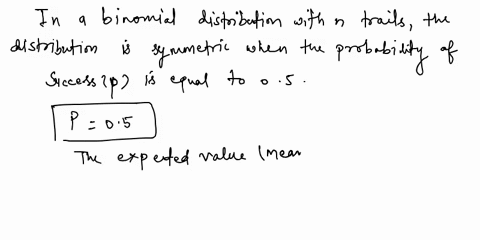 In a binomial distribution with n trails, the
distribution is symmetric when the probability of
Success (p) is equal to 0.5.
P = 0.5
The expected value (mean